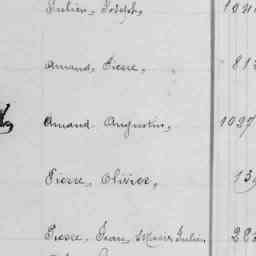 Julien, Joseph,
Amand, Pierre, 81
Amand Augustin, 1027
Pierre, Olivier, 13
Pierre, Jean, Julien, 283